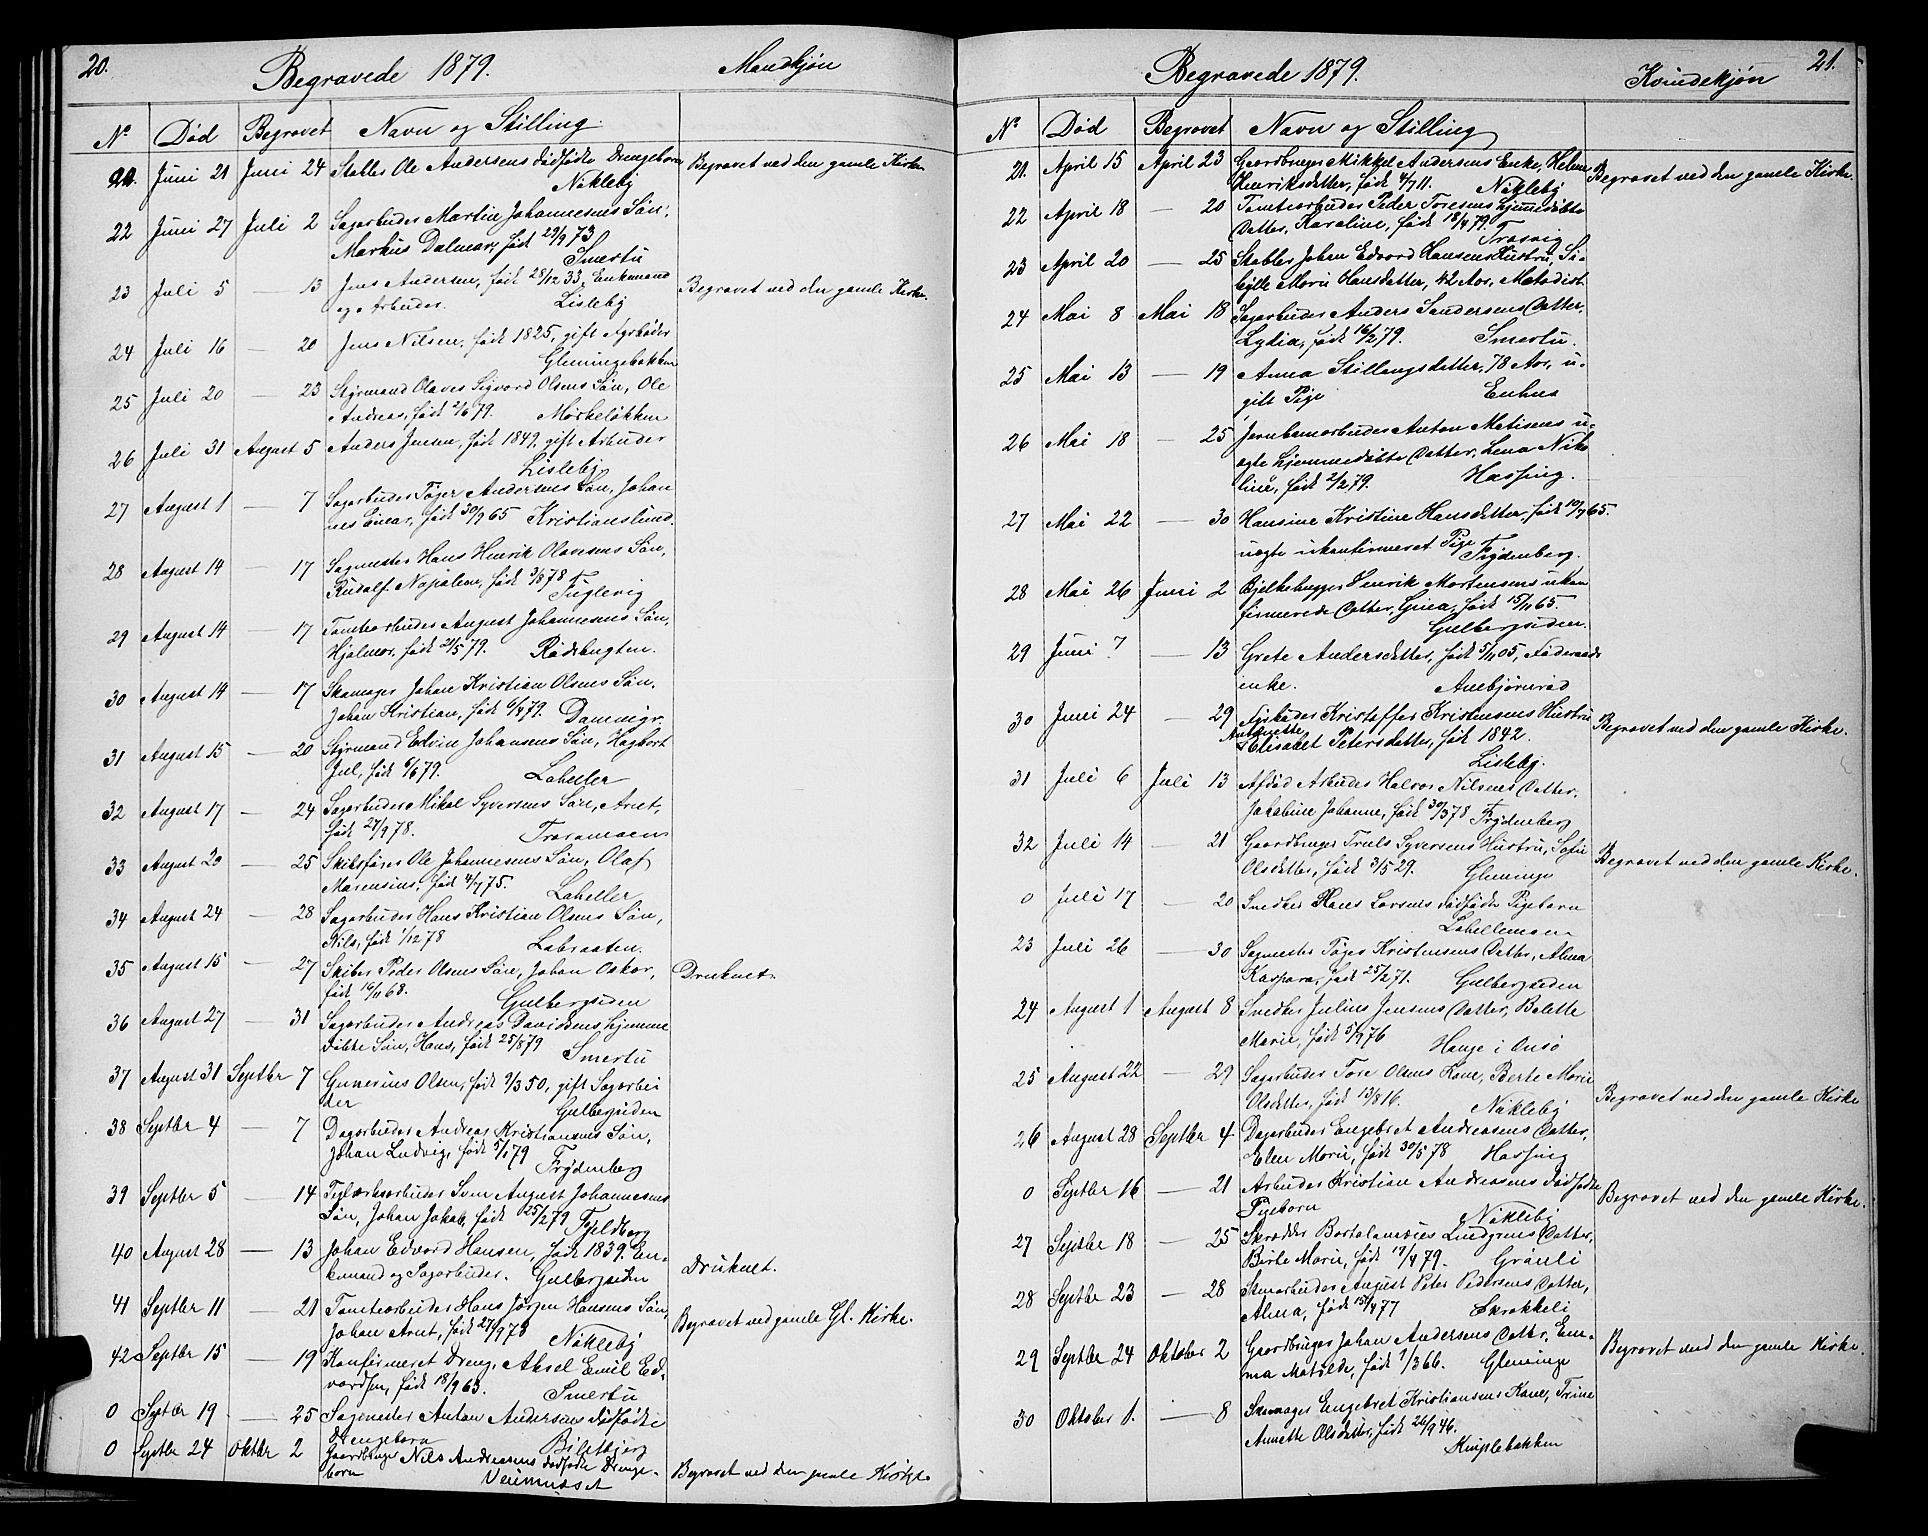 20.
Begravede 1879. Mandkjøn
No Død Begravet Navn og Stilling.
21. Juni 21 Juni 24 Stabler Ole Andersens dødfødte Drengebarn Begravet ved den gamle Kirke
Nökleby
22 Juni 27 Juli 2 Sagarbeider Martin Johannesens Søn,
Markus Dalmar, født 29/9 73
Smertu
23 Juli 5 — 13 Jens Andersen, født 28/12 33, Enkemand Begravet ved den gamle Kirke.
og Arbeider. Lisleby
24 Juli 16 — 20 Jens Nilsen, født 1825, gift Fyrbøder
Glemingebakken
25 Juli 20 — 23 Styrmand Olaves Sigvard Olsens Søn, Ole
Andreas, født 2/6 79. Mørkeløkken
26 Juli 31 August 5 Anders Jensen, født 1849, gift Arbeider
Lisleby
27 August 1 — 7 Sagarbeider Töger Andersens Søn, Johan
nes Einar, født 30/9 65 Kristianslund.
28 August 14 — 17 Sagmester Hans Henrik Olavesens Søn,
Rudolf Napoleon, født 3/8 78
Tuglevig
29 August 14 — 17 Tomtearbeider August Johannesens Søn,
Hjalmar, født 21/5 79. Rødsbugten.
30 August 14 — 17 Skomager Johan Kristian Olsens Søn,
Johan Kristian, født 6/4 79. Dammigr.
31 August 15 — 20 Styrmand Edvin Johansens Søn, Hagbart
Jul, født 9/6 79. Laheller
32 August 17 — 24 Sagarbeider Mikal Syversens Søn, Arnt,
født 27/9 78. Traramoen
33 August 20 — 25 Skibsfører Ole Johannesens Søn, Olaf
Marensius, født 4/7 75.
Laheller
34 August 24 — 28 Sagarbeider Hans Kristian Olsens Søn,
Nils, født 1/12 78 Labraaten.
35 August 15 — 27 Skiber Peder Olsens Søn, Johan Oskar, Druknet.
født 16/11 68.
Gulbergsiden
36 August 27 — 31 Sagarbeider Andreas Davidsens hjemme
døbte Søn, Hans, født 25/8 79
Smertu
37 August 31 Septbr 7 Gunerius Olsen, født 9/3 50, gift Sagarbei
der Gulbergsiden
38 Septbr 4 — 7 Dagarbeider Andreas Kristiansens Søn,
Johan Ludvig, født 5/1 79
Frydenberg
39 Septbr 5 — 14 Teglverksarbeider Sven August Johannesens
Søn, Johan Jakob, født 25/2 79 Fjeldberg
40 August 28 — 13 Johan Edvard Hansen, født 1839. En-
kemand og Sagarbeider. Gulbergsiden Druknet.
41 Septbr 11 — 21 Tomtearbeider Hans Jørgen Hansens Søn, Begravet ved gamle Gl. Kirke.
Johan Arnt, født 27/9 73
Nökleby
42 Septbr 15 — 19 Konfirmeret Dreng, Aksel Emil Ed-
vardsen, født 18/9 63.
Smertu
0 Septbr 19 — 25 Sagmester Anton Andersens dødfødte
Drengebarn Bildtbjerg
0 Septbr 24 Oktbr 2 Gaardbruger Nils Andreasens dødfødte Drenge- Begravet ved den gamle Kirke
barn Veumusset
21.
Begravede 1879. Kvindekjøn
No Død Begravet Navn og Stilling
21. April 15 April 23 Gaardbruger Mikkel Andersens Enke, Helene Begravet ved den gamle Kirke.
Henriksdatter, født 4/7 11. Nökleby
22 April 18 — 20 Tomtearbeider Peder Toresens hjemmedøbte
Datter, Karoline, født 18/4 79.
Trosvig
23 April 20 — 25 Stabler Johan Edvard Hansens Hustru, Si-
bylle Marie Hansdatter, 42 Aar, Metodist.
24 Mai 8 Mai 18 Sagarbeider Anders Sandersens Datter,
Lydia, født 16/2 79. Smertu.
25 Mai 13 — 19 Anna Stillaugsdatter, 78 Aar, u-
gift Pige Enhus
26 Mai 18 — 25 Jernbanearbeider Anton Matisens u-
ægte hjemmedøbte Datter, Lena Niko
line, født 2/2 79. Hassing.
27 Mai 22 — 30 Hansine Kristine Hansdatter, født 10/7 65.
uægte ukonfirmeret Pige
Frydenberg.
28 Mai 26 Juni 2 Bjelkehugger Henrik Mortensens ukon
firmerede Datter, Gina, født 15/11 65.
Gulbergsiden.
29 Juni 7 — 13 Grete Andersdatter, født 5/11 05, Føderaads
enke. Anebjørnrød
30 Juni 24 — 29 Fyrbøder Kristoffer Kristensens Hustru Begravet ved den gamle Kirke.
Antonette
Elisabet Petersdatter, født 1842.
Lisleby.
31 Juli 6 Juli 13 Afdød Arbeider Halvor Nilsens Datter,
Jakobine Johanne, født 30/3 78 Frydenberg
32 Juli 14 — 21 Gaardbruger Truls Syversens Hustru, Sofie Begravet ved den gamle Kirke.
Olsdatter, født 3/5 29. Gleminge
0 Juli 17 — 20 Snedker Hans Larsens dødfødte Pigebarn
Lahellemoen
23 Juli 26 — 30 Sagmester Töger Kristensens Datter, Alma
Kaspara, født 25/2 71. Gulbergsiden
24 August 1 August 8 Snedker Julius Jensens Datter, Bolette
Marie, født 5/9 76
Hauge i Onsö
25 August 22 — 29 Sagarbeider Tore Olsens Kone, Berte Marie Begravet ved den gamle Kirke
Olsdatter, født 13/8 16. Nökleby
26 August 28 Septbr 4 Dagarbeider Engebret Andreasens Datter,
Elen Marie, født 30/5 78 Hassing
0 Septbr 16 — 21 Arbeider Kristian Andreasens dødfødte Begravet ved den gamle Kirke.
Pigebarn
Nökleby
27 Septbr 18 — 25 Skrædder Bartolomæus Lindgrens Datter,
Berte Marie, født 17/4 79. Grønli
28 Septbr 23 — 28 Stenarbeider August Peter Pedersens Datter,
Alma, født 15/4 77 Skrakkeli
29 Septbr 24 Oktober 2 Gaardbruger Johan Andersens Datter, Em- Begravet ved den gamle Kirke.
ma Matilde, født 1/3 66. Gleminge
30 Oktober 1. — 8 Skomager Engebret Kristiansens Kone, Trine
Annette Olsdatter, født 26/9 46.
Kniplebakken